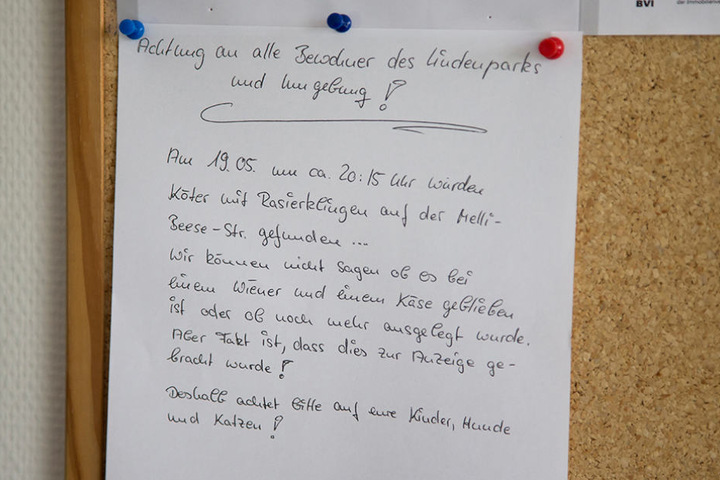 BVI
der Immobilienve
Achtung an alle Bewohner des Lindenparks
und Umgebung!
Am 19.05. um ca. 20:15 Uhr wurden
Köter mit Rasierklingen auf der Melli-
Beese-Str. gefunden ...
Wir können nicht sagen ob es bei
einem Wiener und einem Käse geblieben
ist oder ob noch mehr ausgelegt wurde.
Aber Fakt ist, dass dies zur Anzeige ge-
bracht wurde!
Deshalb achtet bitte auf eure Kinder, Hunde
und Katzen!